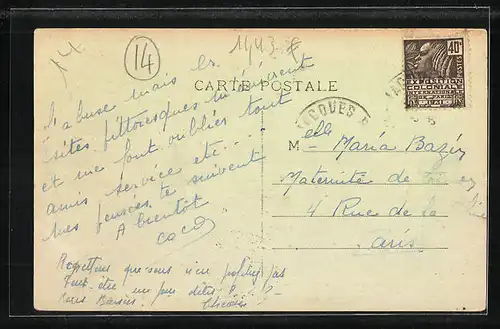 14
14
1943-8
CARTE POSTALE
J'abuse mais les
sites pittoresques m'énivrent
et me font oublier tout
amis service etc....
Mes pensées te suivent
A bientôt
coco
Regrettons que vous n'en profitiez pas
Peut être un jour dites ? !?
Bons Baisers.
40c
POSTES
EXPOSITION
COLONIALE
INTERNATIONALE
PARIS 1931
JACQUES
Melle Maria Bazin
Maternité de
4 Rue de la
Paris.